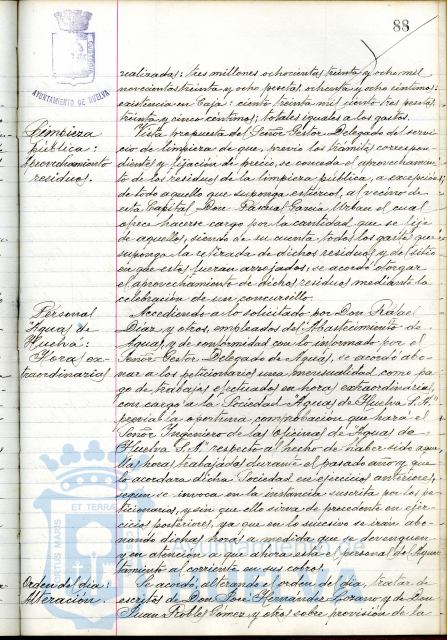 88
AYUNTAMIENTO DE HUELVA
realizada: tres millones ochocientas treinta y ocho mil
novecientas treinta y ocho pesetas, ochenta y ocho céntimos;
existencia en Caja: ciento treinta mil ciento tres pesetas
treinta y cinco céntimos; totales iguales a los gastos.
Limpieza
pública:
Aprovechamiento
residuos.
Vista propuesta del Señor Gestor Delegado del servi-
cio de limpieza de que, previo los trámites correspon-
dientes y fijación de precio, se conceda el aprovechamien-
to de los residuos de la limpieza pública, a excepción
de todo aquello que suponga estiércol, al vecino de
esta Capital Don Pascual García el cual
ofrece hacerse cargo por la cantidad que se fije
de aquellos, siendo de su cuenta todos los gastos que
suponga la retirada de dichos residuos y del sitio
en que estos fueran arrojados, se acordó otorgar
el aprovechamiento de dichos residuos mediante la
celebración de un concursillo.
Personal
Aguas de
Huelva:
Horas ex-
traordinarias
Accediendo a lo solicitado por Don Rafael
Díaz y otros, empleados del Abastecimiento de
Aguas, y de conformidad con lo informado por el
Señor Gestor Delegado de Aguas, se acordó abo-
nar a los peticionarios una mensualidad como pa-
go de trabajos efectuados en horas extraordinarias,
con cargo a la Sociedad "Aguas de Huelva S.A."
previa la oportuna comprobación que hará el
Señor Ingeniero de las Oficinas de "Aguas de
Huelva S.A." respecto al hecho de haber sido aque-
llas horas trabajadas durante el pasado año y que
lo acordara dicha Sociedad en ejercicios anteriores,
según se invoca en la instancia suscrita por los pe-
ticionarios, y sin que ello sirva de precedente en ejer-
cicios posteriores, ya que en lo sucesivo se irán abo-
nando dichas horas a medida que se devenguen
y en atención a que ahora está el personal del Ayun-
tamiento al corriente en sus cobros.
Orden del día:
Alteración.
Se acordó, alterando el orden del día, tratar de
escritos de Don José Hernández Lozano y de Don
Juan Robles Gómez y otros sobre provisión de la